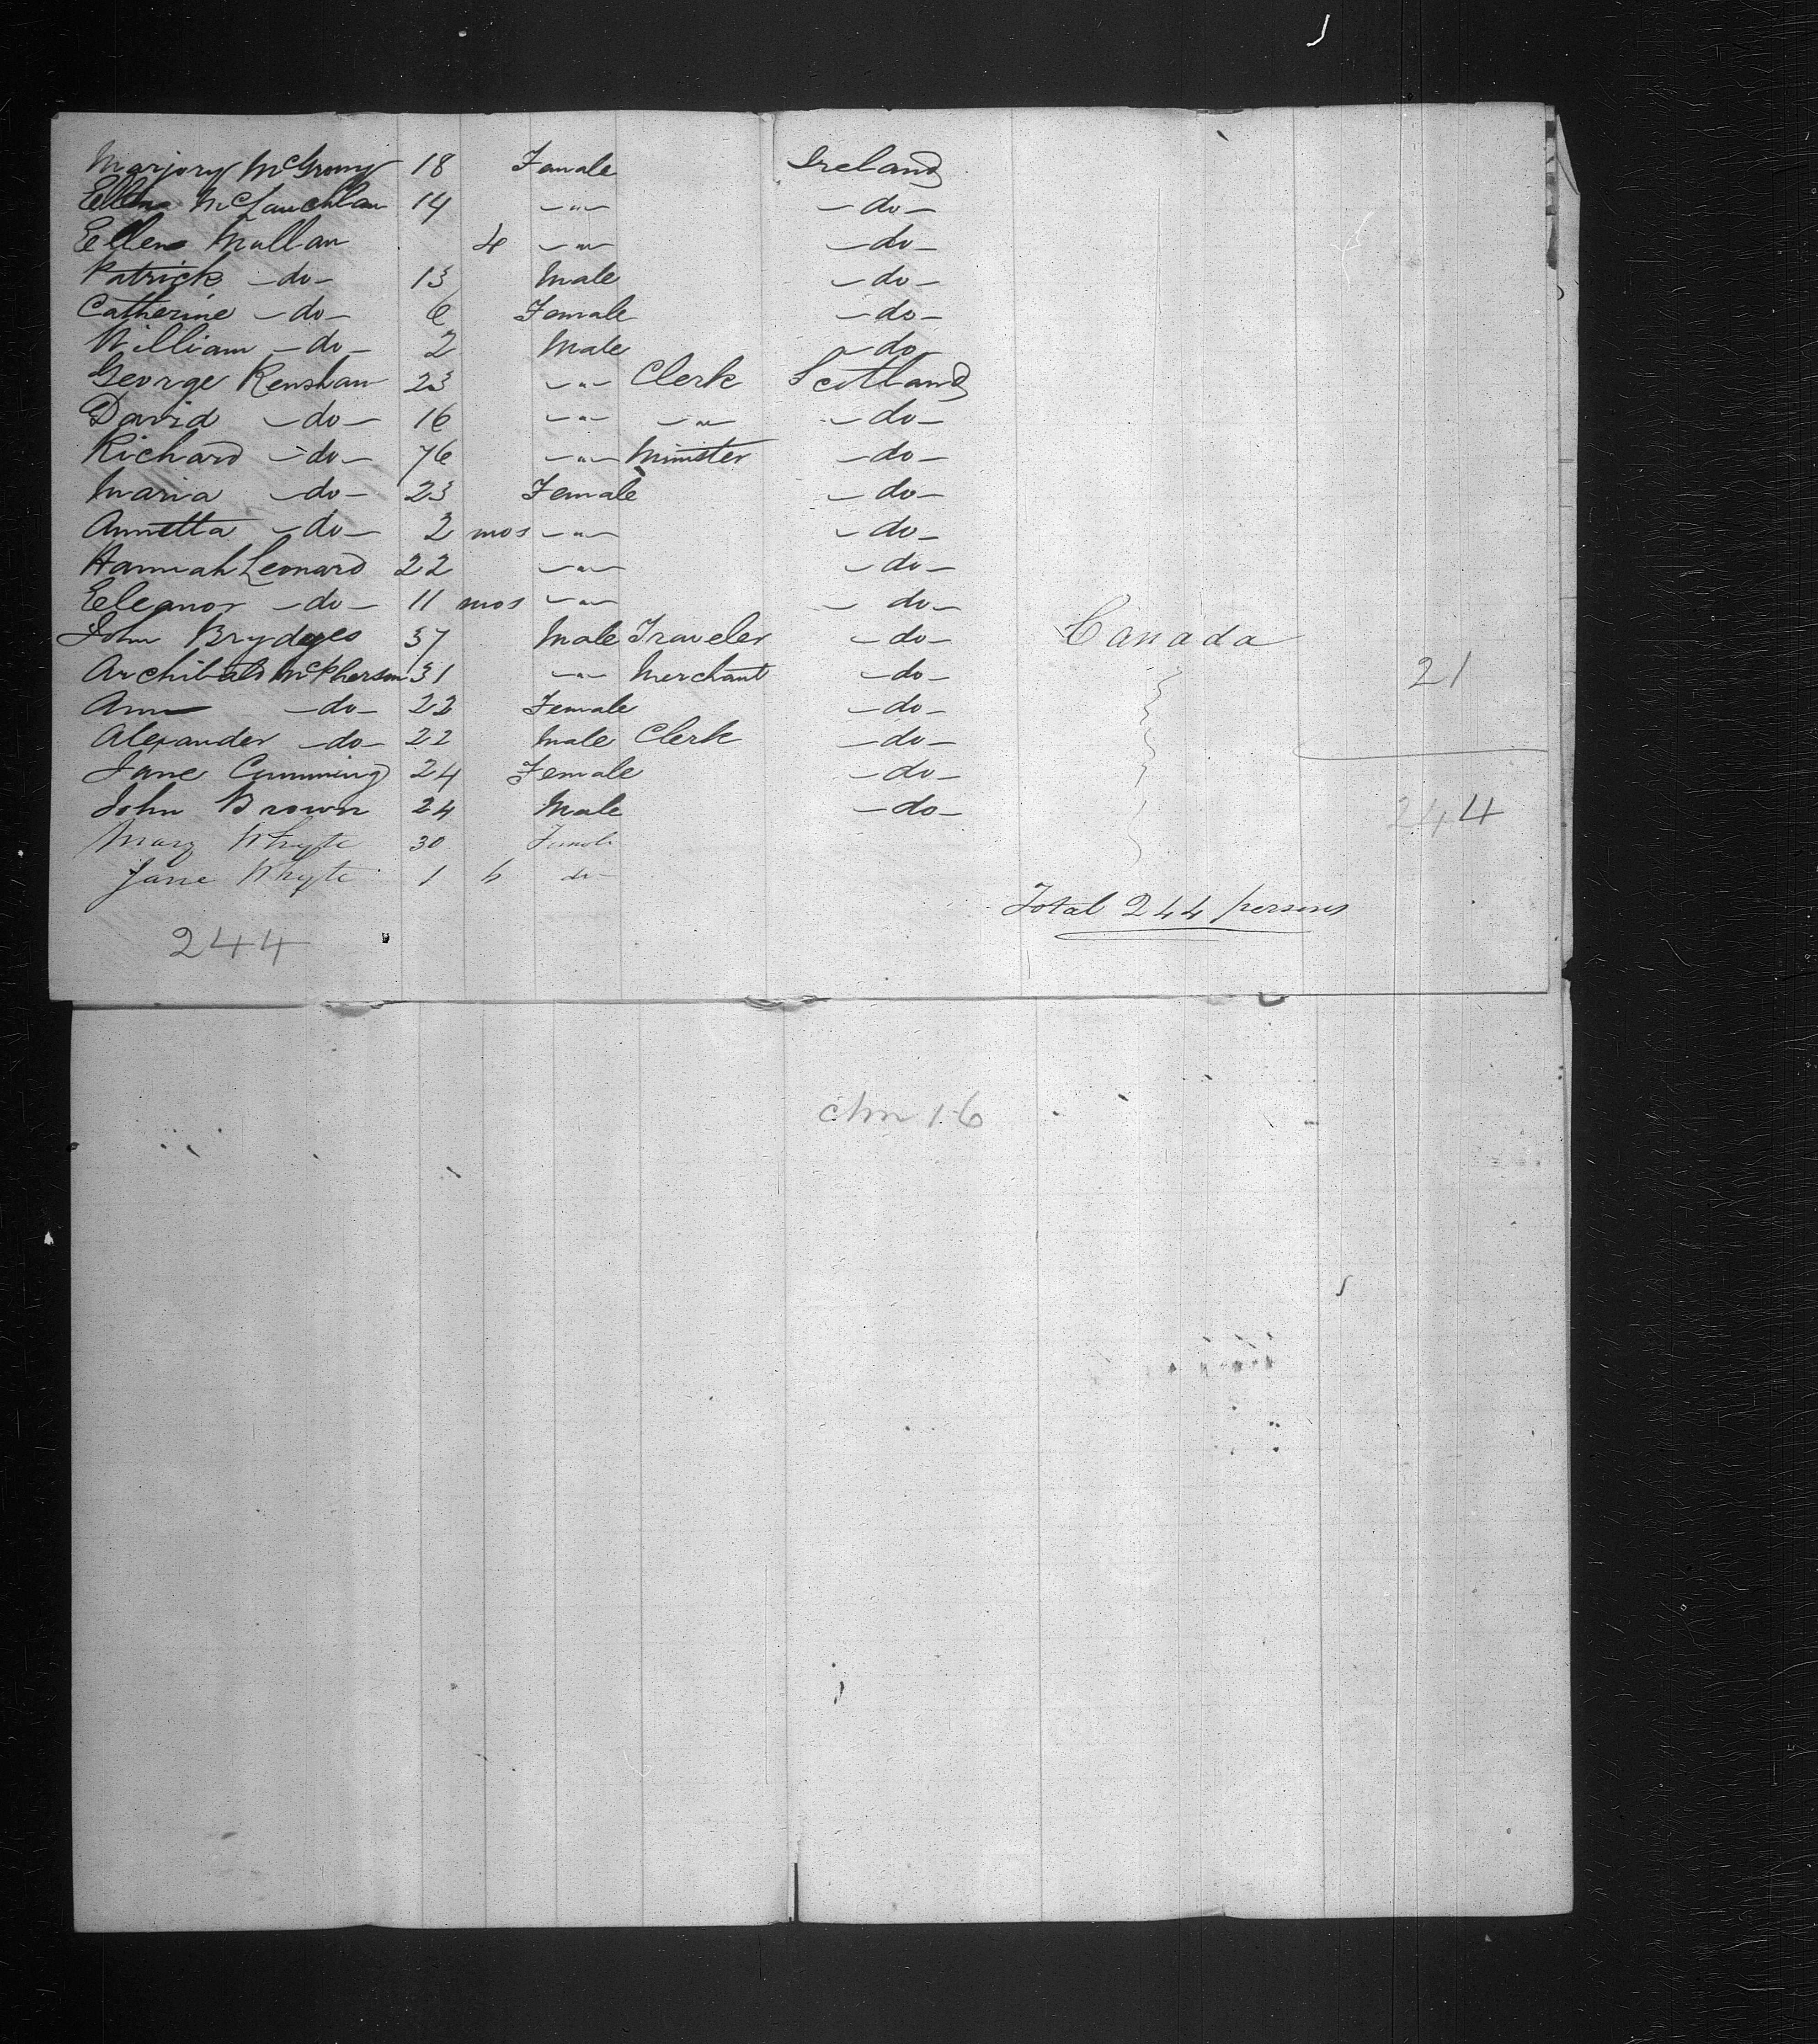 Marjory McGrory 18 Female Ireland
Ellen McLauchlan 14 -"- -do-
Ellen Mullan 4 -"- -do-
Patrick -do- 13 Male -do-
Catherine -do- 6 Female -do-
William -do- 2 Male -do-
George Renshaw 23 -"- Clerk Scotland
David -do- 16 -"- -"- -do-
Richard -do- 76 -"- Minister -do-
Maria -do- 23 Female -do-
Annetta -do- 2 mos -"- -do-
Hannah Leonard 22 -"- -do-
Eleanor -do- 11 mos -"- -do-
John Brydges 37 Male Traveler -do- Canada
Archibald McPherson 31 -"- Merchant -do- 21
Ann -do- 22 Female -do-
Alexander -do- 22 Male Clerk -do-
Jane Cumming 24 Female -do-
John Brown 24 Male -do- 244
Mary Whyte 30 Female
Jane Whyte 1 6 do
Total 244 persons
244